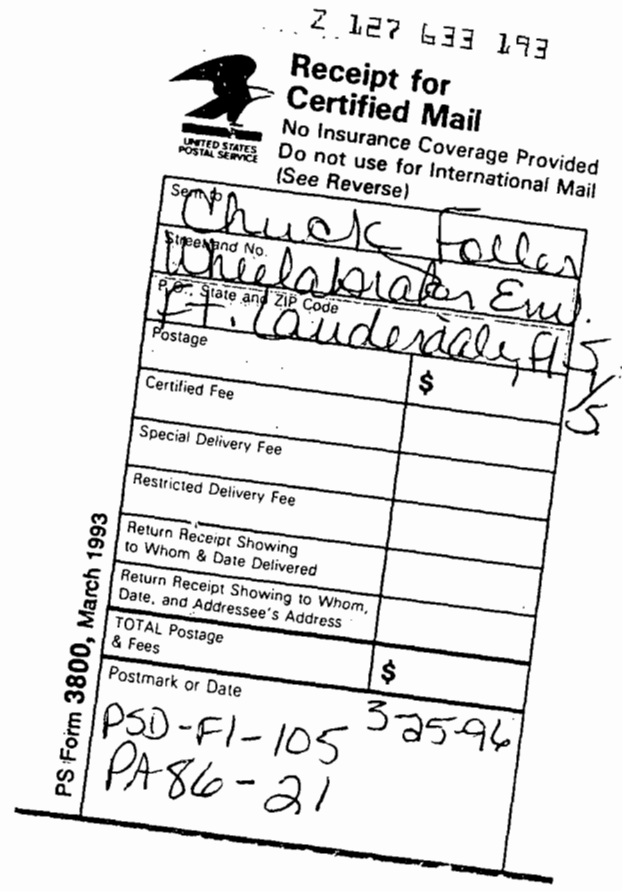 Z 127 633 193
Receipt for
Certified Mail
No Insurance Coverage Provided
Do not use for International Mail
(See Reverse)
UNITED STATES
POSTAL SERVICE
Sent to
Chuck Faller
Street and No.
Wheelabrator Env.
P.O., State and ZIP Code
Ft. Lauderdale, Fl
Postage
$
Certified Fee
Special Delivery Fee
Restricted Delivery Fee
Return Receipt Showing
to Whom & Date Delivered
Return Receipt Showing to Whom,
Date, and Addressee's Address
TOTAL Postage
& Fees
$
Postmark or Date
3-25-96
PSD-Fl-105
PA86-21
PS Form 3800, March 1993